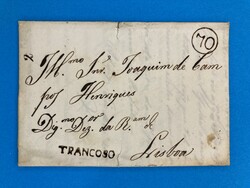 70
Illmo Snr. Joaquim de Cam
pos Henriques
Dgmo Dez. da R.
TRANCOSO
Lisboa